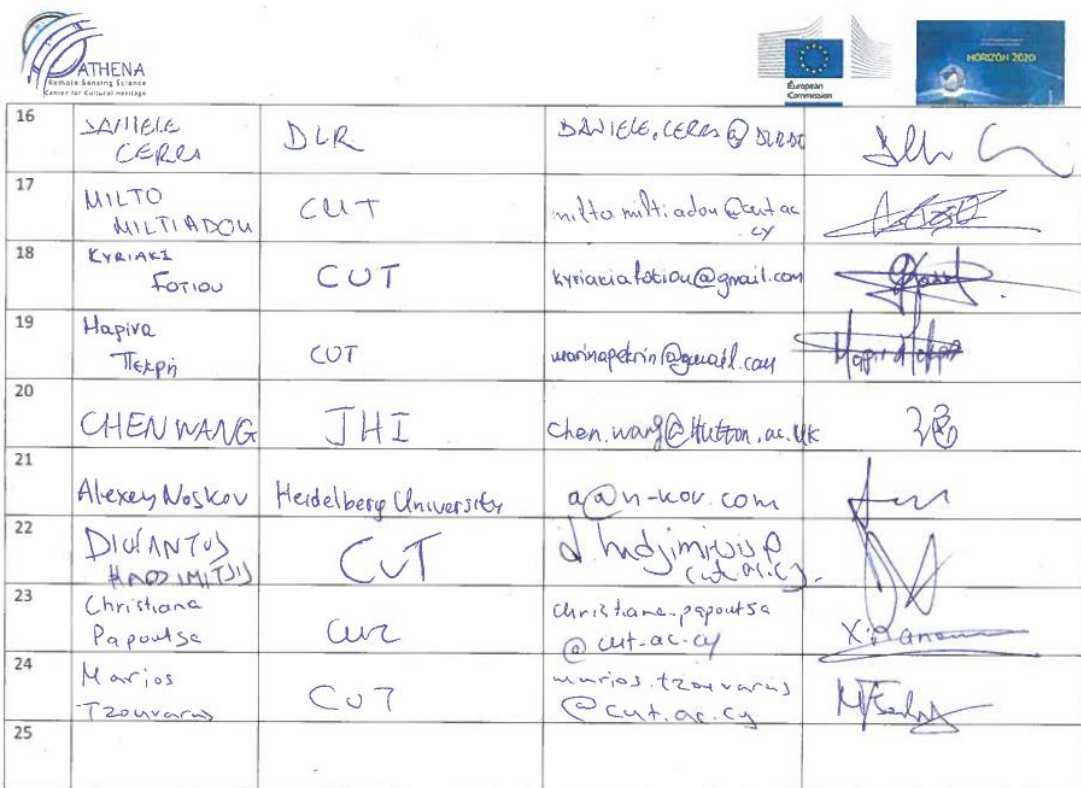 ATHENA
Remote Sensing Science
Center for Cultural Heritage
European
Commission
HORIZON 2020
16 DANIELE DLR DANIELE.CERRA@DLR.DE
CERRA
17 MILTO CUT milto.miltiadou@cut.ac
MILTIADOU .cy
18 KYRIAKI CUT kyriakiafotiou@gmail.com
FOTIOU
19 Μαρίνα CUT marinapekrin@gmail.com
Πεκρή
20 CHEN WANG JHI chen.wang@Hutton.ac.uk
21 Alexey Noskov Heidelberg University a@n-kov.com
22 DIOFANTOS CUT d.hadjimitsis@
HADJIMITSIS cut.ac.cy.
23 Christiana CUT christiana.papoutsa
Papoutsa @cut.ac.cy
24 Marios CUT marios.tzouvaras
Tzouvaras @cut.ac.cy
25